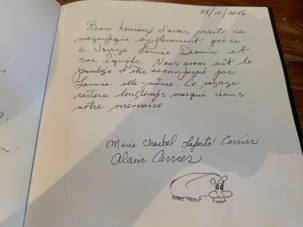 25/10/2025
heureux d'avoir visité ce
magnifique emplacement grâce
à Voyage Louise Drouin et
son équipe. Nous avons eu le
privilège d'être accompagné par
Louise elle même. Ce voyage
restera longtemps marqué dans
notre mémoire
Marie Chantal Laferté Carrier
Alain Carrier